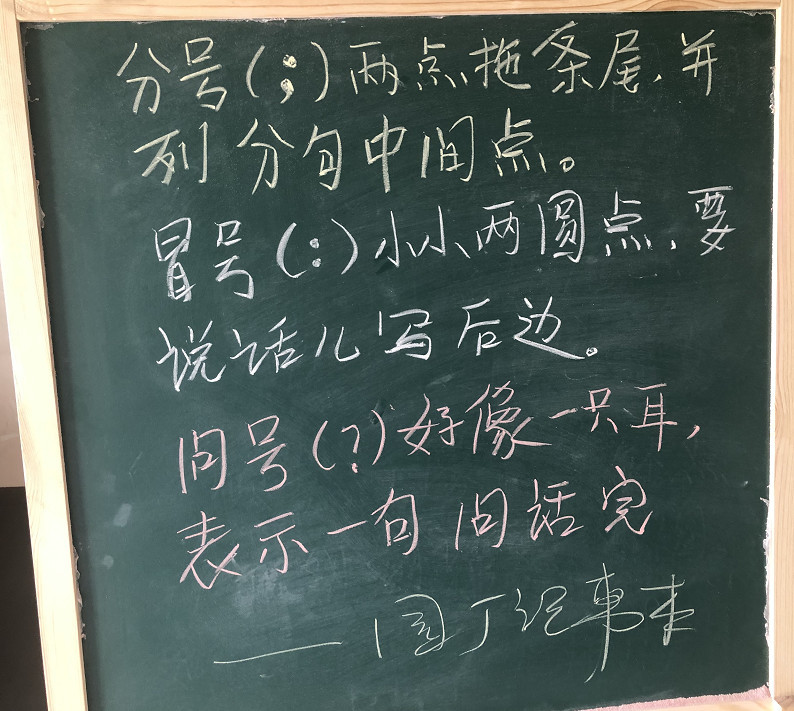 分号(;)两点拖条尾,并
列分句中间点。
冒号(:)小小两圆点,要
说话儿写后边。
问号(?)好像一只耳,
表示一句问话完
——园丁纪事本